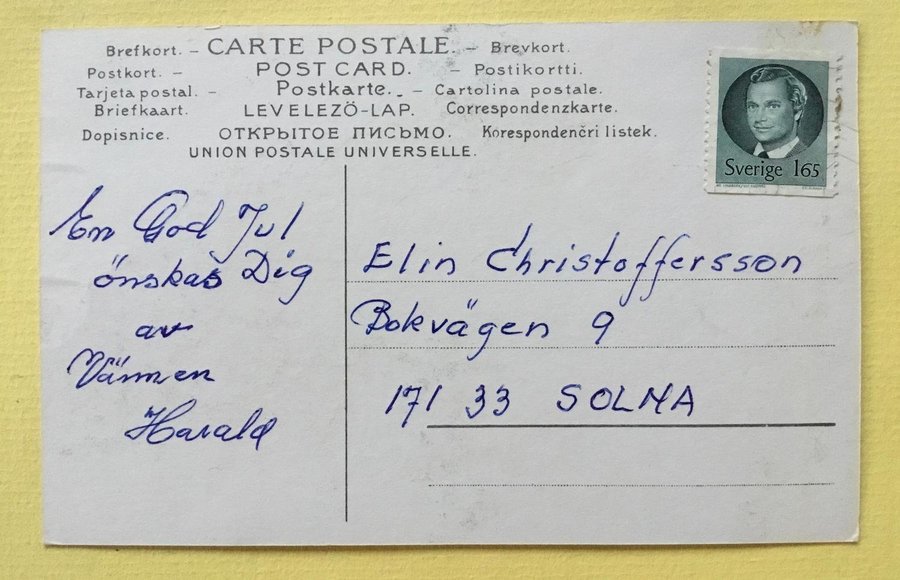 Brefkort. – CARTE POSTALE. – Brevkort.
Postkort. – POST CARD. – Postikortti.
Tarjeta postal. – Postkarte. – Cartolina postale.
Briefkaart. LEVELEZÖ-LAP. Correspondenzkarte.
Dopisnice. ОТКРЫТОЕ ПИСЬМО. Korespondenčri listek.
UNION POSTALE UNIVERSELLE.
Sverige 165
En God Jul
önskas Dig
av
Vännen
Harald
Elin Christoffersson
Bokvägen 9
171 33 SOLNA